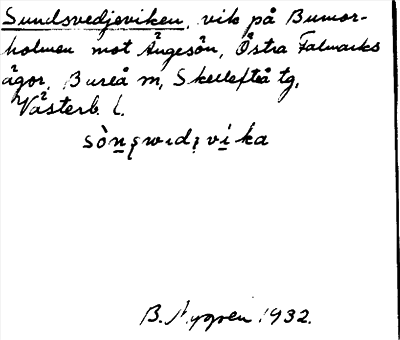 Sundsvedjeviken, vik på Bumor-
holmen mot Ängesön, Östra Falmarks
ägor, Bureå m, Skellefteå tg,
Västerb. l.
sònswıdȷvika
B. Nygren 1932.